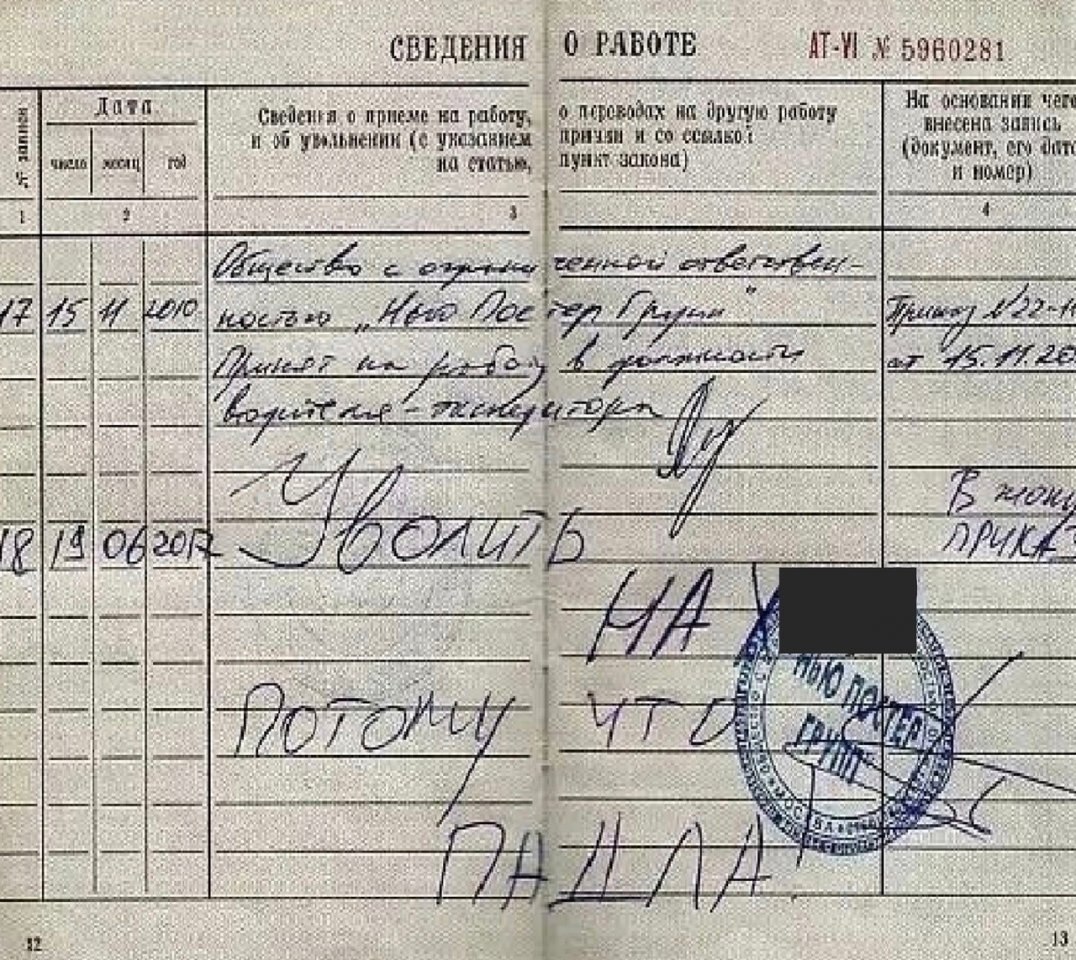 СВЕДЕНИЯ О РАБОТЕ АТ-VI № 5960281
№ записи
Дата
число месяц год
Сведения о приеме на работу, о переводах на другую работу
и об увольнении (с указанием причин и со ссылкой
на статью, пункт закона)
На основании чего
внесена запись
(документ, его дата
и номер)
1 2 3 4
Общество с ограниченной ответствен-
17 15 11 2010 ностью „Нью Постер Групп" Приказ №22-
Принят на работу в должности от 15.11.20
водителя-экспедитора
Уволить
В
18 19 06 2017 ПРИКАЗ
НА
ПОТОМУ ЧТО
ПАДЛА
НЬЮ ПОСТЕР
ГРУПП
МОСКВА
12 13